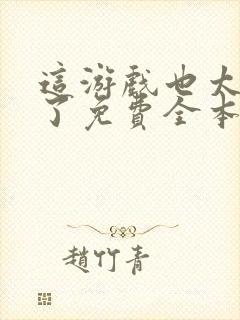 這游戲也太
了免費全本
趙竹青